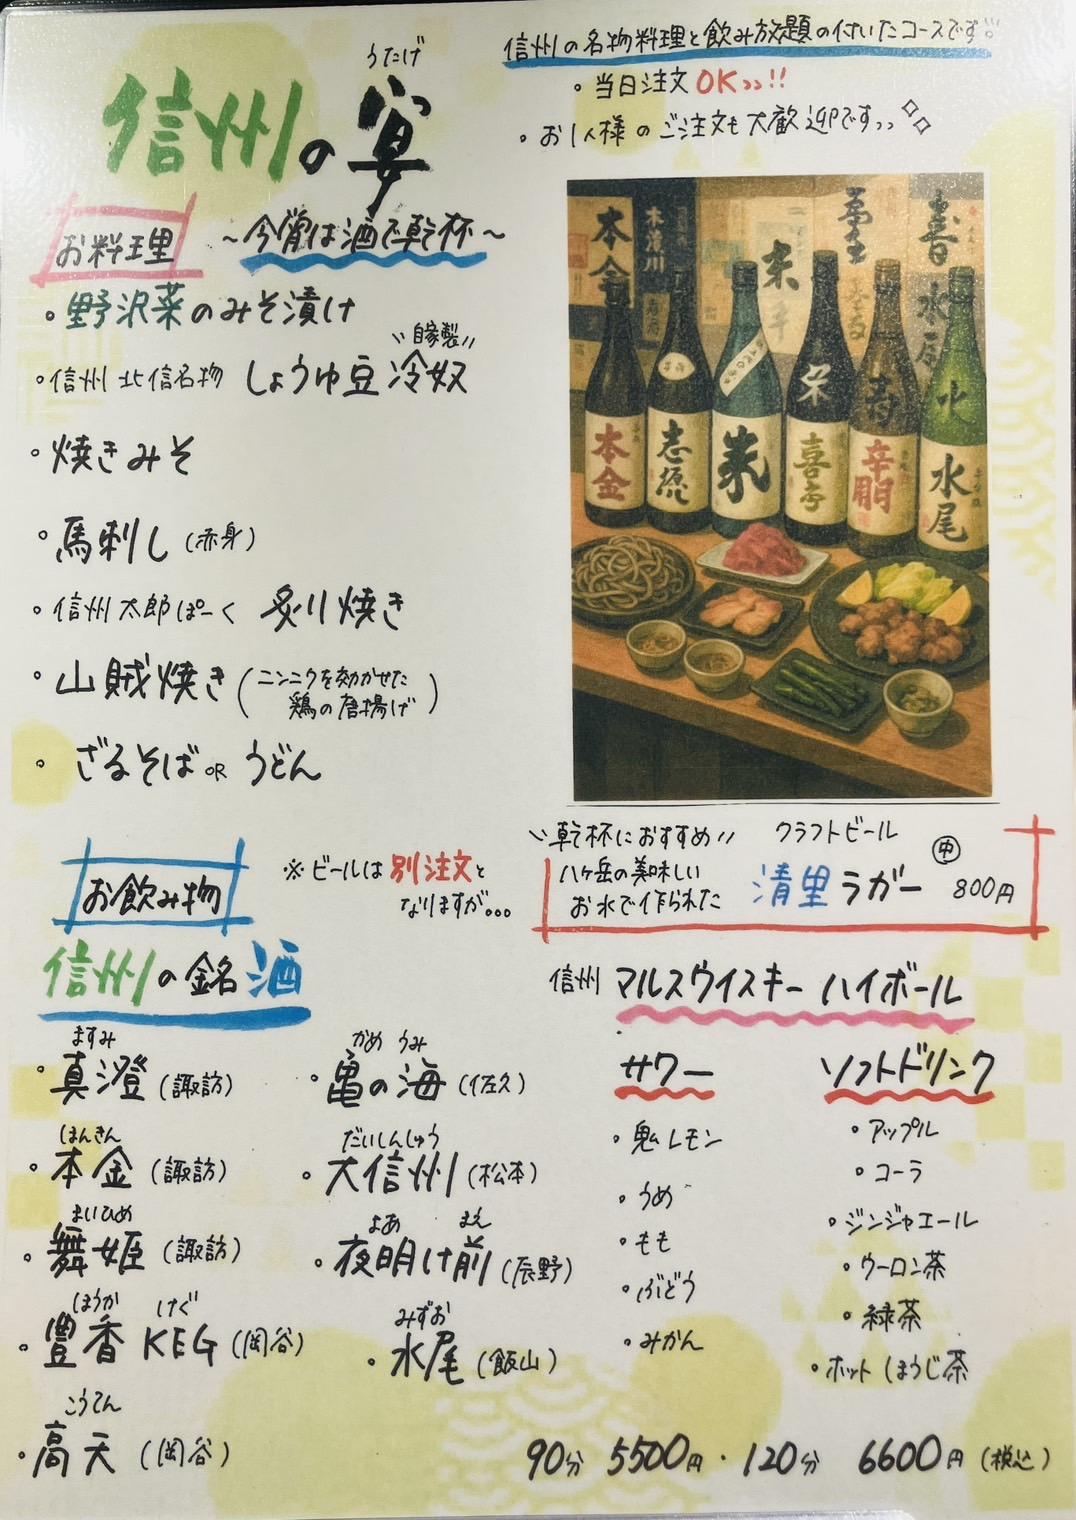 信州の名物料理と飲み放題の付いたコースです。
・当日注文OK〉〉!!
・お1人様のご注文も大歓迎です〉〉
うたげ
信州の宴
～今宵は酒で乾杯～
お料理
・野沢菜のみそ漬け
・信州北信名物 しょうゆ豆冷奴
自家製
・焼きみそ
・馬刺し(赤身)
・信州太郎ぽーく 炙り焼き
・山賊焼き(ニンニクを効かせた
鶏の唐揚げ)
・ざるそばORうどん
本金
志源
米
喜亭
水尾
お飲み物
※ビールは別注文と
なりますが。。。
乾杯におすすめ クラフトビール
八ヶ岳の美味しい
お水で作られた 清里ラガー 中 800円
信州の銘酒
ますみ
・真澄(諏訪)
ほんきん
・本金(諏訪)
まいひめ
・舞姫(諏訪)
ほうか けぐ
・豊香KEG(岡谷)
こうてん
・高天(岡谷)
かめ うみ
・亀の海(佐久)
だいしんしゅう
・大信州(松本)
よあ まえ
・夜明け前(辰野)
みずお
・水尾(飯山)
信州 マルスウイスキー ハイボール
サワー
・鬼レモン
・うめ
・もも
・ぶどう
・みかん
ソフトドリンク
・アップル
・コーラ
・ジンジャエール
・ウーロン茶
・緑茶
・ホットほうじ茶
90分 5500円・120分 6600円(税込)